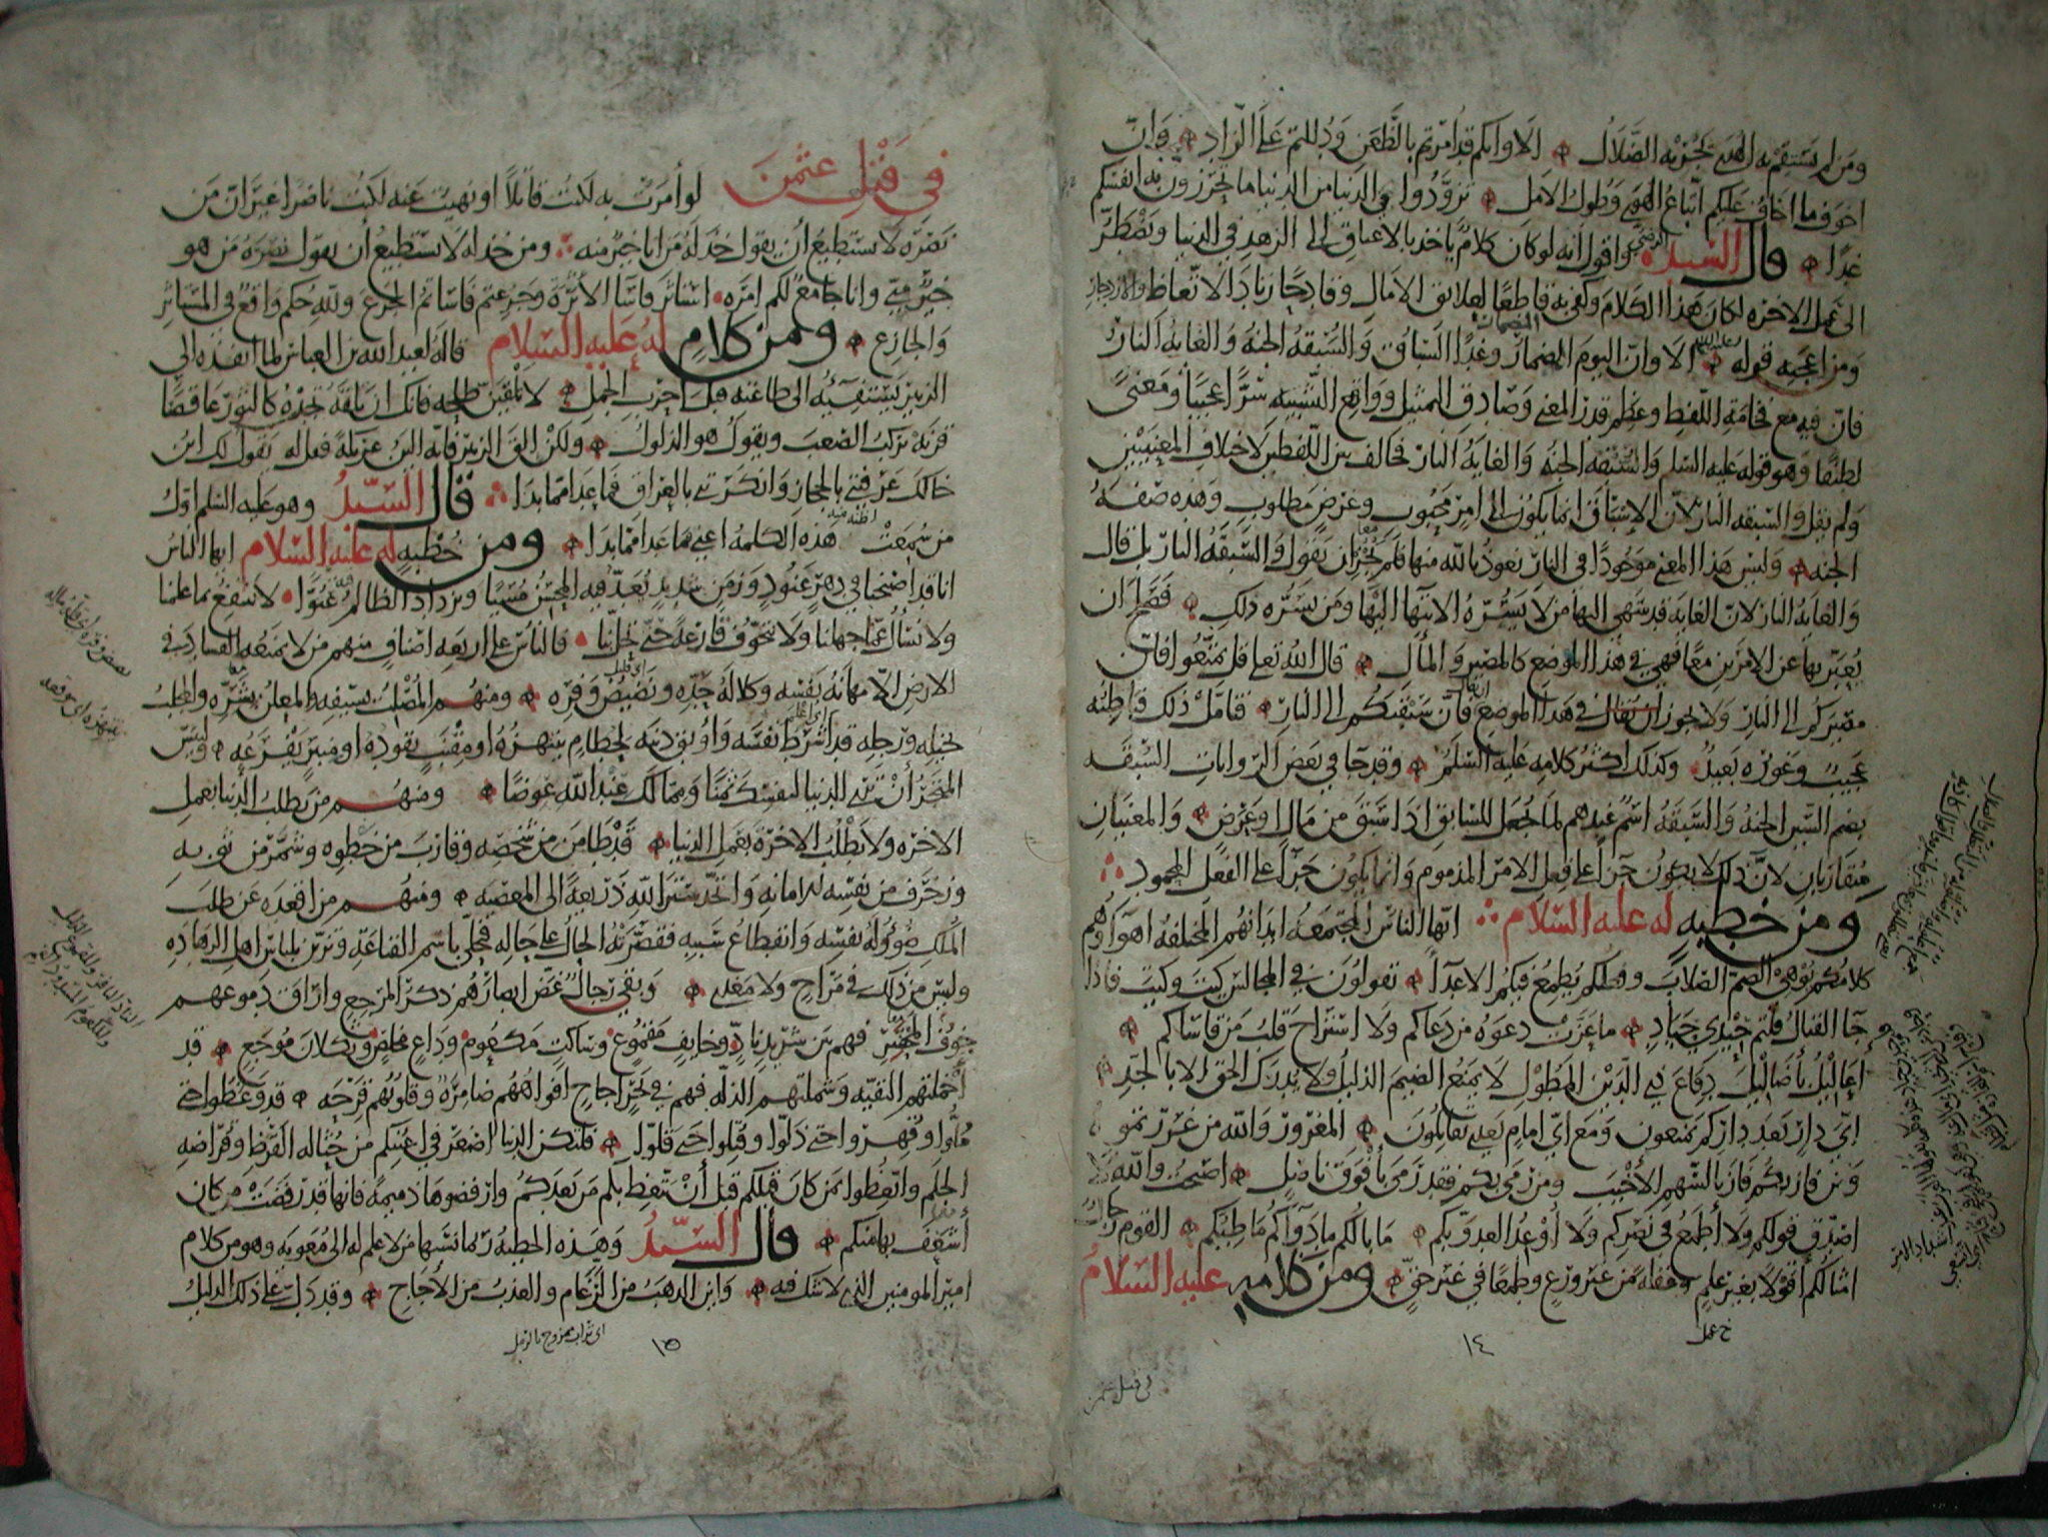 ومن لم يستقم به الهدى يجز به الضلال الا وانكم قد امرتم بالظعن ودللتم على الزاد وان
اخوف ما اخاف عليكم اتباع الهوى وطول الامل تزودوا في الدنيا من الدنيا ما تحرزون به انفسكم
غدا قال السيد واقول انه لو كان كلام ياخذ بالاعناق الى الزهد في الدنيا ويضطر
الى عمل الاخره لكان هذا الكلام وكفى به قاطعا لعلائق الامال وقادحا زناد الاتعاظ والازدجار
ومن اعجبه قوله عليه السلم الا وان اليوم المضمار وغدا السباق والسبقه الجنه والغايه النار
فان فيه مع فخامة اللفظ وعظم قدر المعنى وصادق التمثيل وواقع التشبيه سرا عجيبا ومعنى
لطيفا وهو قوله عليه السلم والسبقه الجنه والغاية النار فخالف بين اللفظين لاختلاف المعنيين
ولم يقل والسبقه النار لان الاستباق انما يكون الى امر محبوب وغرض مطلوب وهذه صفة
الجنه وليس هذا المعنى موجودا في النار نعوذ بالله منها فلم يجز ان يقول والسبقة النار بل قال
والغاية النار لان الغاية قد ينتهي اليها من لا يسره الانتهاء اليها ومن يسره ذلك فصلح ان
يعبر بها عن الامرين معا فهي في هذا الموضع كالمصير والمآل قال الله تعالى قل تمتعوا فان
مصيركم الى النار ولا يجوز ان يقال في هذا الموضع فان سبقتكم الى النار فتامل ذلك فباطنه
عجيب وغوره بعيد وكذلك اكثر كلامه عليه السلم وقد جا في بعض الروايات السبقه
بضم السين الجنه والسبقة اسم عندهم لما يجعل للسابق اذا سبق من مال او عرض والمعنيان
متقاربان لان ذلك لا يكون جزاء على فعل الامر المذموم وانما يكون جزاء على الفعل المحمود
ومن خطبه له عليه السلام ايها الناس المجتمعة ابدانهم المختلفة اهواؤهم
كلامكم يوهي الصم الصلاب وفعلكم يطمع فيكم الاعداء تقولون في المجالس كيت وكيت فاذا
جا القتال قلتم حيدي حياد ما عزت دعوة من دعاكم ولا استراح قلب من قاساكم
اعاليل باضاليل دفاع ذي الدين المطول لا يمنع الضيم الذليل ولا يدرك الحق الا بالجد
اي دار بعد داركم تمنعون ومع اي امام بعدي تقاتلون المغرور والله من غررتموه
ومن فاز بكم فاز بالسهم الاخيب ومن رمى بكم فقد رمى بافوق ناصل اصبحت والله لا
اصدق قولكم ولا اطمع في نصركم ولا اوعد العدو بكم ما بالكم ما دواكم ما طبكم القوم رجال
امثالكم اقولا بغير علم وغفلة من غير ورع وطمعا في غير حق ومن كلامه عليه السلام
خ عمل
١٤
في قتل عثمن
في قتل عثمن لو امرت به لكنت قاتلا او نهيت عنه لكنت ناصرا غير ان من
نصره لا يستطيع أن يقول خذله من انا خير منه ومن خذله لا يستطيع أن يقول نصره من هو
خير مني وانا جامع لكم امره استاثر فاسا الاثرة وجزعتم فاساتم الجزع ولله حكم واقع في المستاثر
والجازع ومن كلام له عليه السلام قاله لعبد الله بن العباس لما انفذه الى
الزبير يستفيئه الى طاعته قبل حرب الجمل لا تلقين طلحه فانك ان تلقه تجده كالثور عاقصا
قرنه يركب الصعب ويقول هو الذلول ولكن الق الزبير فانه الين عريكة فقل له يقول لك ابن
خالك عرفتني بالحجاز وانكرتني بالعراق فما عدا مما بدا قال السيد وهو عليه السلم اول
من سمعت هذه الكلمة اعني فما عدا مما بدا ومن خطبه له عليه السلام ايها الناس
انا قد اصبحنا في دهر عنود وزمن شديد يعد فيه المحسن مسيئا ويزداد الظالم عتوا لا ننتفع بما علمنا
ولا نسأل عما جهلنا ولا نتخوف قارعة حتى تحل بنا فالناس على اربعه اصناف منهم من لا يمنعه الفساد في
الارض الا مهانة نفسه وكلالة حده ونضيض وفره ومنهم المصلت بسيفه والمعلن بشره والمجلب
بخيله ورجله قد اشرط نفسه واوبق دينه لحطام ينتهزه او مقنب يقوده او منبر يفرعه ولبئس
المتجر أن ترى الدنيا لنفسك ثمنا ومما لك عند الله عوضا ومنهم من يطلب الدنيا بعمل
الاخره ولا يطلب الاخرة بعمل الدنيا قد طامن من شخصه وقارب من خطوه وشمر من ثوبه
وزخرف من نفسه للامانة واتخذ ستر الله ذريعة الى المعصيه ومنهم من اقعده عن طلب
الملك ضؤولة نفسه وانقطاع سببه فقصرته الحال على حاله فتحلى باسم القناعة وتزين بلباس اهل الزهاده
وليس من ذلك في مراح ولا مغدى وبقي رجال غض ابصارهم ذكر المرجع واراق دموعهم
خوف المحشر فهم بين شريد ناد وخايف مقموع وساكت مكعوم وداع مخلص وثكلان موجع قد
اخملتهم التقيه وشملتهم الذله فهم في بحر اجاج افواههم ضامزة وقلوبهم قرحه قد وعظوا حتى
ملوا وقهروا حتى ذلوا وقتلوا حتى قلوا فلتكن الدنيا اصغر في اعينكم من حثالة القرظ وقراضه
الجلم واتعظوا بمن كان قبلكم قبل أن يتعظ بكم من بعدكم وارفضوها ذميمة فانها قد رفضت من كان
أشغف بها منكم قال السيد وهذه الخطبة ربما نسبها من لا علم له الى معوية وهو من كلام
امير المومنين الذي لا شك فيه واين الذهب من الرغام والعذب من الأجاج وقد دل على ذلك الدليل
اى تراب ممزوج بالرمل
١٥